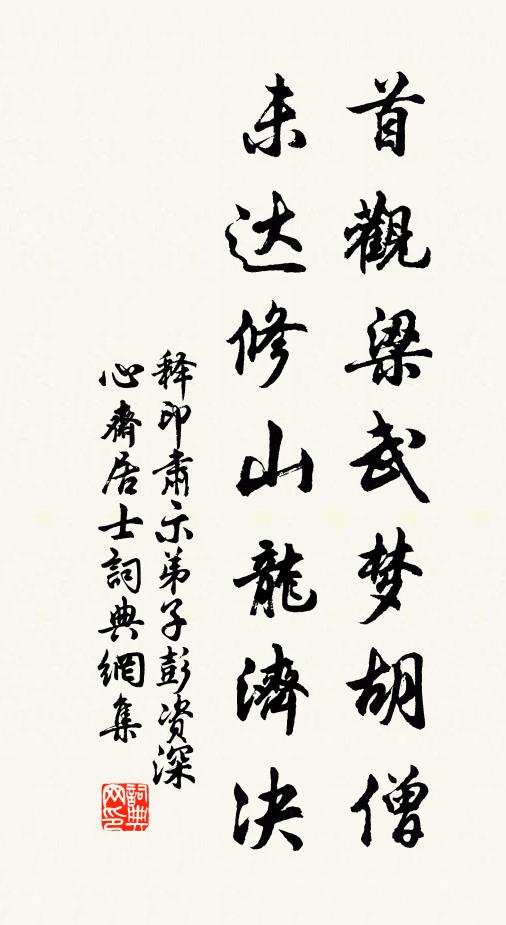 首觀梁武梦胡僧
未达修山龍濟决
释印肃示弟子彭资深
心齋居士詞典網集
詞典网印